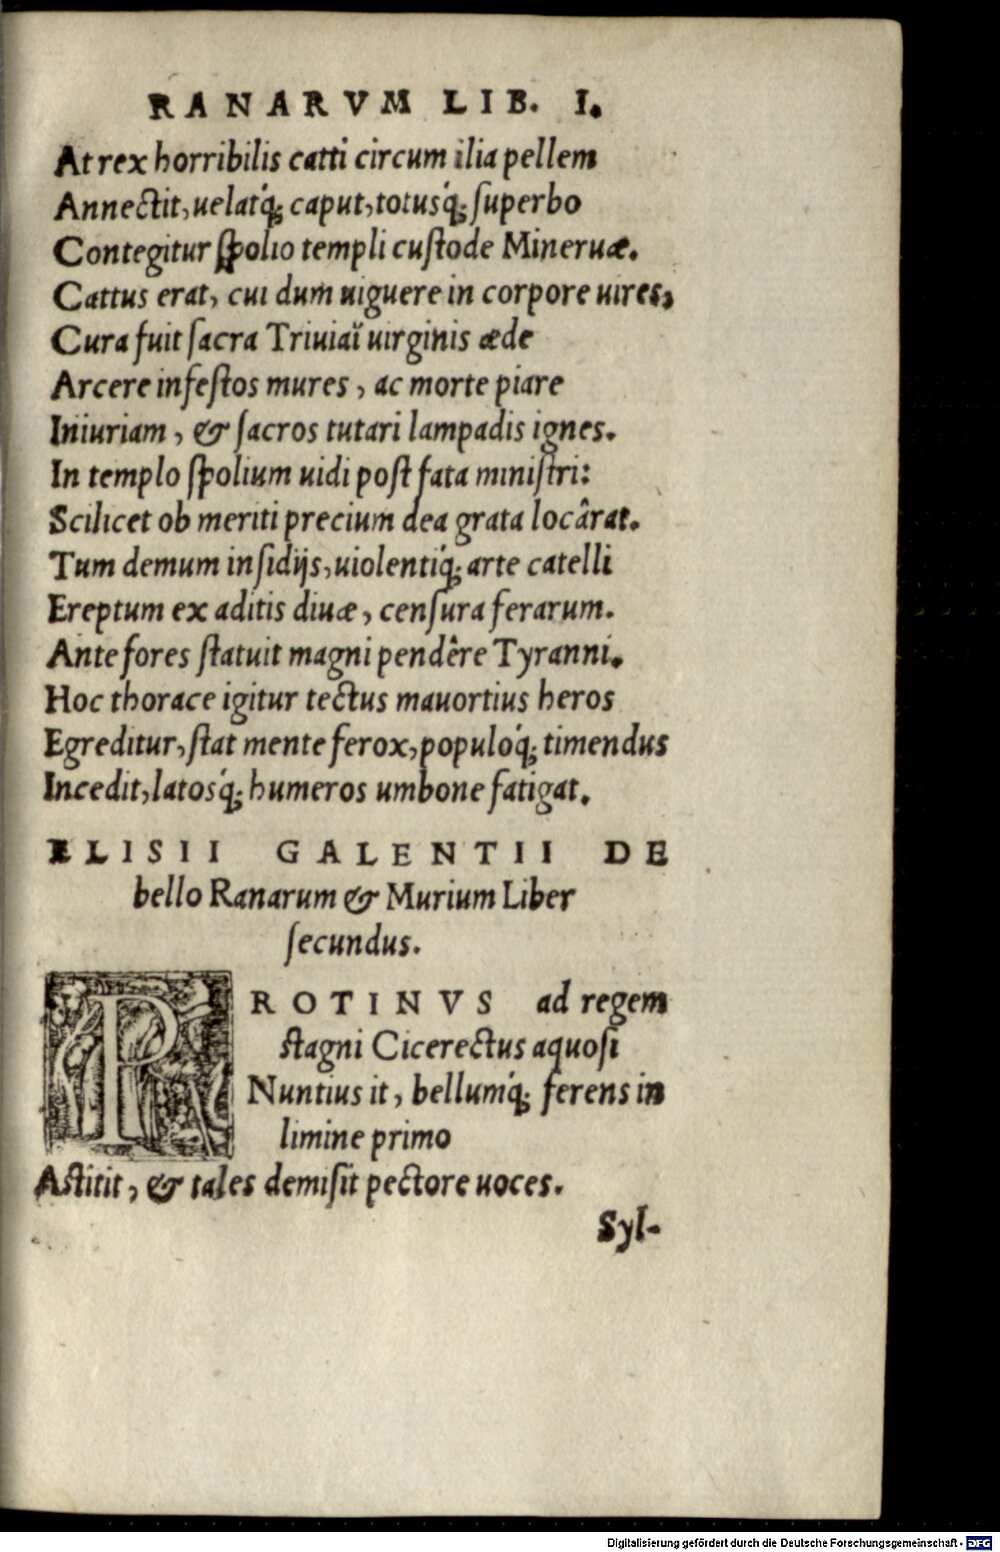 RANARVM LIB. I.
At rex horribilis catti circum ilia pellem
Annectit, uelatq́; caput, totusq́; ſuperbo
Contegitur ſpolio templi cuſtode Mineruæ.
Cattus erat, cui dum uiguere in corpore uires,
Cura fuit ſacra Triuiaï uirginis æde
Arcere infeſtos mures, ac morte piare
Iniuriam, & ſacros tutari lampadis ignes.
In templo ſpolium uidi poſt fata miniſtri:
Scilicet ob meriti precium dea grata locârat.
Tum demum inſidijs, uiolentiq́; arte catelli
Ereptum ex aditis diuæ, cenſura ferarum.
Ante fores ſtatuit magni pendêre Tyranni.
Hoc thorace igitur tectus mauortius heros
Egreditur, ſtat mente ferox, populoq́; timendus
Incedit, latosq́; humeros umbone fatigat.
ELISII GALENTII DE
bello Ranarum & Murium Liber
ſecundus.
PROTINVS ad regem
ſtagni Cicerectus aquoſi
Nuntius it, bellumq́; ferens in
limine primo
Aſtitit, & tales demiſit pectore uoces.
Syl-
Digitalisierung gefördert durch die Deutsche Forschungsgemeinschaft - DFG